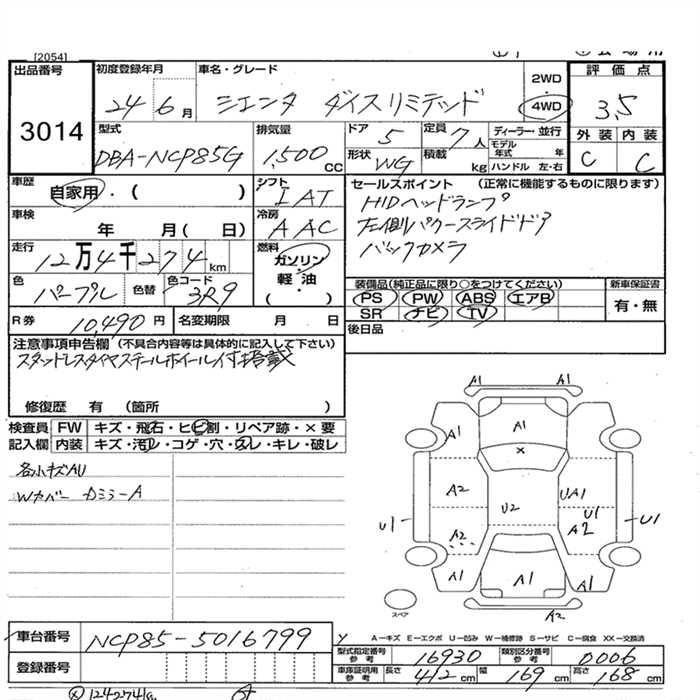 [2054]
出品番号
3014
初度登録年月
24 6月
車名・グレード
シエンタ ダイスリミテッド
2WD
4WD
評価点
3.5
外装 内装
C C
型式
DBA-NCP85G
排気量
1,500 CC
ドア 5
定員 7人
形状 WG
積載 kg
ディーラー・並行
モデル年式 年
ハンドル 左・右
車歴
自家用・( )
シフト
IAT
車検
年 月 (日)
冷房
AAC
走行
12万4千274km
燃料
ガソリン
・
軽油
( )
色
パープル
色替
色コード
3R9
セールスポイント (正常に機能するものに限ります)
HIDヘッドランプ
左側パワースライドドア
バックカメラ
装備品(純正品に限り○をつけてください)
PS PW ABS エアB
SR ナビ TV
新車保証書
有・無
後日品
R券 10,490円
名変期限 月 日
注意事項申告欄 (不具合内容等は具体的に記入して下さい)
スタッドレスタイヤスチールホイール付搭載
修復歴 有 (箇所 )
検査員 FW キズ・飛石・ヒビ割・リペア跡・×要
記入欄 内装 キズ・汚レ・コゲ・穴・スレ・キレ・破レ
各小キズAU
Wカバー カミラーA
A1 A1
A1 A1 A1
×
A2 U2 UA1
U1 U1 U1
A2 A2
A1 A1 A1
A2
スペア
A−キズ E−エクボ U−凹み W−補修跡 S−サビ C−腐食 XX−交換済
車台番号
NCP85-5016799
登録番号
型式指定番号参考 16930
類別区分番号参考 0006
車庫証明用参考 長さ 412 cm 幅 169 cm 高さ 168 cm